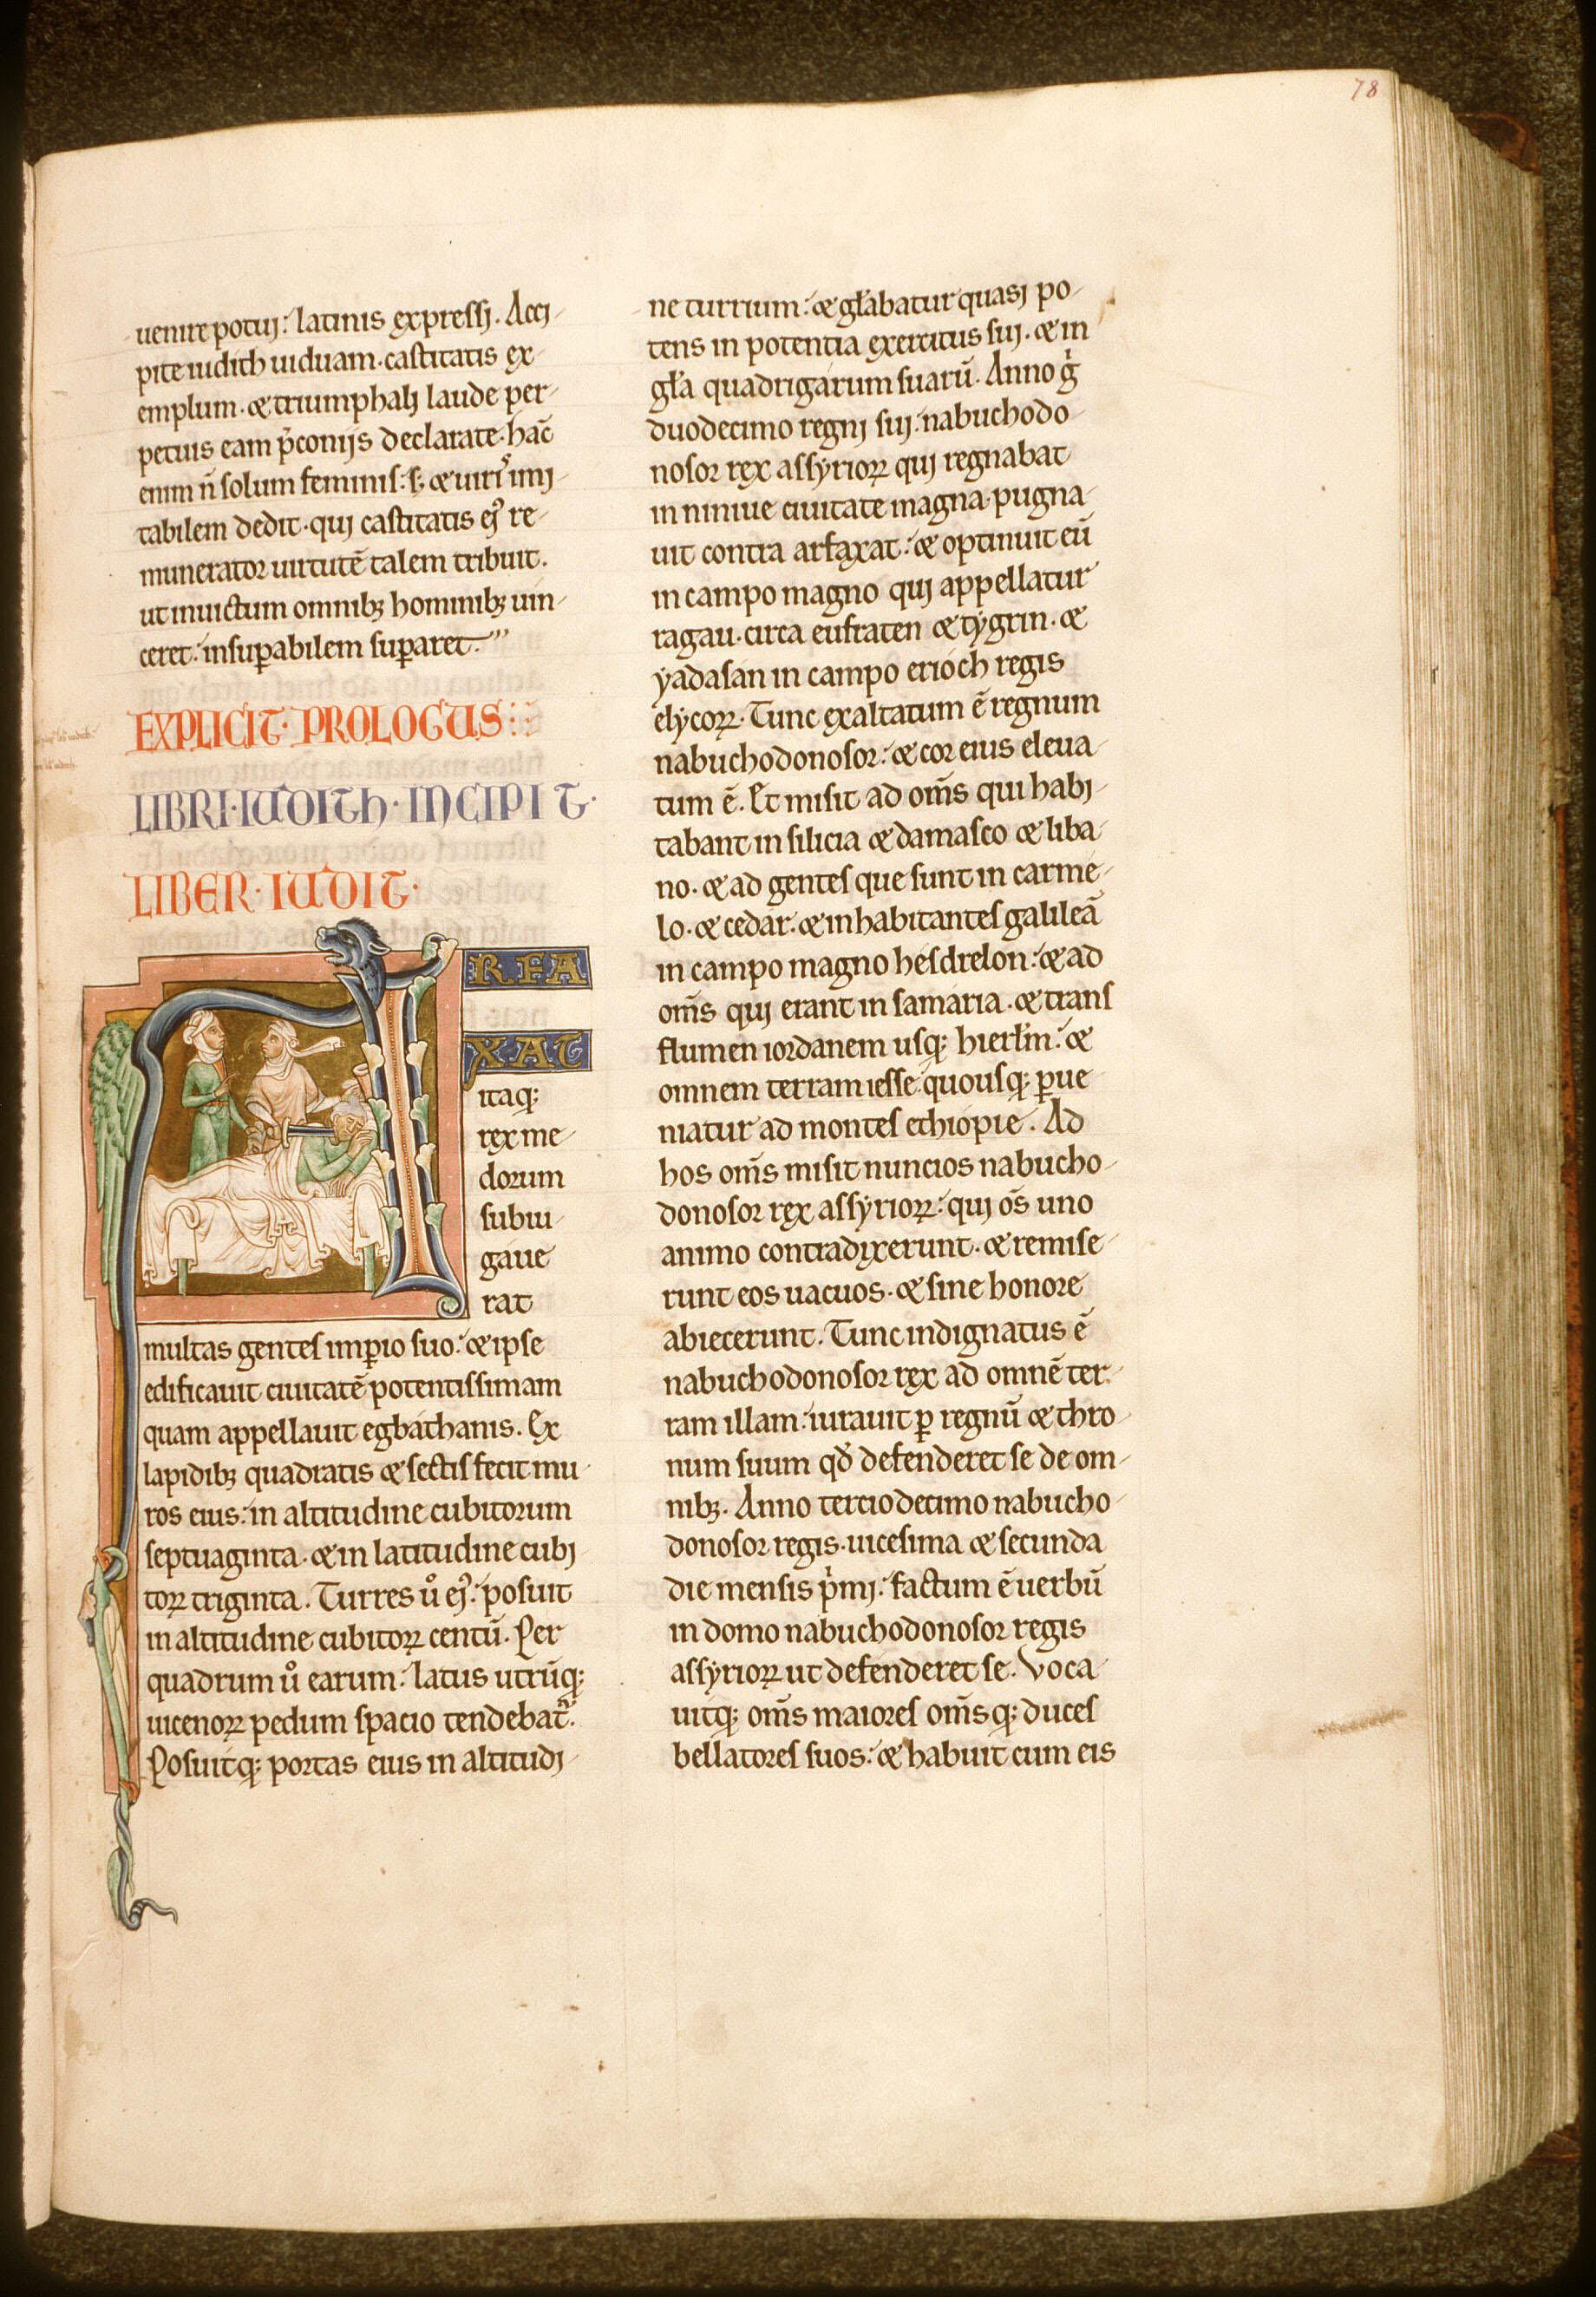 78
uenire potuj: latinis expressj. Accj-
pite iudith uiduam. castitatis ex-
emplum. & triumphalj laude per-
petuis eam p̄conijs declarate. hāc
enim n̄ solum feminis: s; & uiris imj-
tabilem dedit. quj castitatis ej᾽ re-
munerator uirtutē talem tribuit.
ut inuictum omnibꝫ hominibꝫ uin-
ceret: insuꝑabilem suꝑaret.
EXPLICIT. PROLOGUS
LIBRI. IUDITH. INCIPIT.
LIBER. IUDIT.
ARFA
XAT
itaqꝫ
rex me-
dorum
subiu-
gaue
rat
multas gentes imꝑio suo: & ipse
edificauit ciuitatē potentissimam
quam appellauit egbathanis. Ex
lapidibꝫ quadratis & sectis fecit mu-
ros eius: in altitudine cubitorum
septuaginta. & in latitudine cubj-
toꝝ triginta. Turres ů ej᾽: posuit
in altitudine cubitoꝝ centū. Per
quadrum ů earum: latus utrūqꝫ
uicenoꝝ pedum spacio tendebat᷑.
Posuitqꝫ portas eius in altitudj-
ne turrium: & gl̄abatur quasj po-
tens in potentia exercitus suj. & in
gl̄a quadrigarum suarū. Anno gͥ
duodecimo regnj suj: nabuchodo-
nosor rex assyrioꝝ quj regnabat
in niniue ciuitate magna pugna-
uit contra arfaxat: & optinuit eū
in campo magno quj appellatur
ragau. circa eufraten & tygrin. &
yadasan in campo erioch regis
elycoꝝ. Tunc exaltatum ē regnum
nabuchodonosor: & cor eius eleua-
tum ē. Et misit ad om̄s qui habj-
tabant in silicia & damasco & liba-
no. & ad gentes que sunt in carme-
lo. & cedar. & inhabitantes galileā
in campo magno hesdrelon: & ad
om̄s quj erant in samaria. & trans
flumen iordanem usqꝫ hierl̄m: &
omnem terram iesse quousqꝫ ꝑue-
niatur ad montes ethiopie. Ad
hos om̄s misit nuncios nabucho-
donosor rex assyrioꝝ: quj om̄s uno
animo contradixerunt. & remise-
runt eos uacuos. & sine honore
abiecerunt. Tunc indignatus ē
nabuchodonosor rex ad omnē ter-
ram illam: iurauit ꝑ regnū & thro-
num suum qd̄ defenderet se de om-
nibꝫ. Anno terciodecimo nabucho-
donosor regis. uicesima & secunda
die mensis pͥmj: factum ē uerbū
in domo nabuchodonosor regis
assyrioꝝ ut defenderet se. Voca-
uitqꝫ om̄s maiores om̄sqꝫ duces
bellatores suos: & habuit cum eis